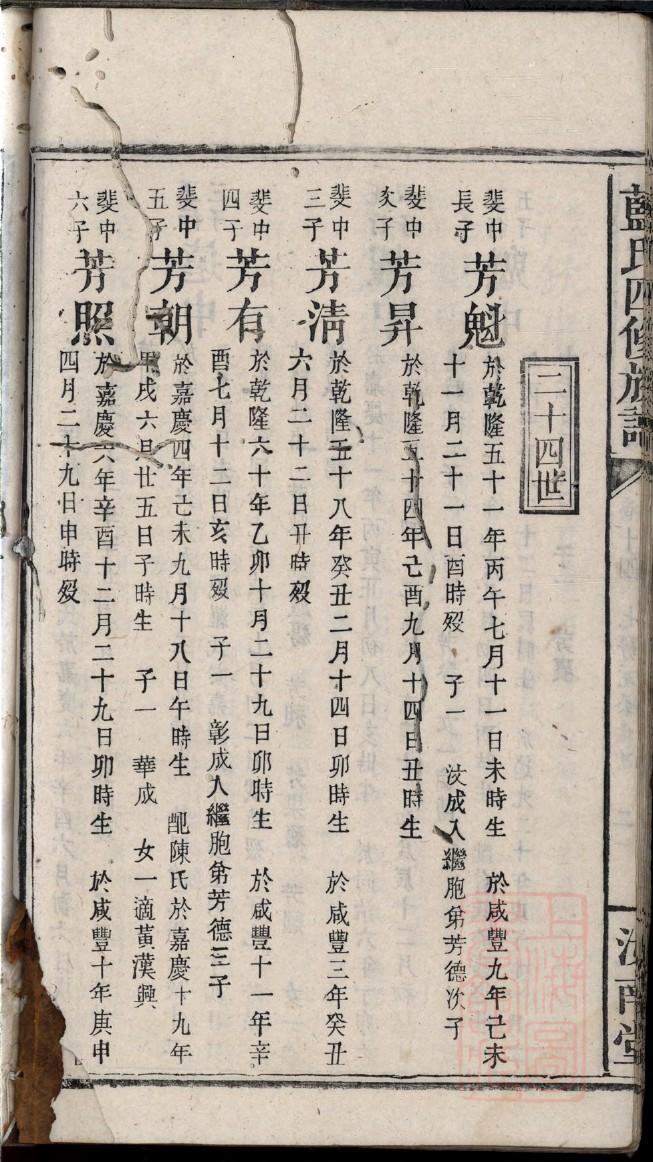 藍氏四修族譜
二十四世
斐中長子 芳魁 於乾隆五十一年丙午七月十一日未時生 於咸豐九年己未
十一月二十一日酉時歿 子一 汝成入繼胞弟芳德次子
斐中次子 芳昇 於乾隆五十四年己酉九月十四日丑時生
斐中三子 芳淸 於乾隆五十八年癸丑二月十四日卯時生 於咸豐三年癸丑
六月二十二日丑時歿
斐中四子 芳有 於乾隆六十年乙卯十月二十九日卯時生 於咸豐十一年辛
酉七月十二日亥時歿 子一 彰成入繼胞弟芳德三子
斐中五子 芳朝 於嘉慶四年己未九月十八日午時生 配陳氏於嘉慶十九年
甲戌六月廿五日子時生 子一 華成 女一適黃漢興
斐中六子 芳照 於嘉慶六年辛酉十二月二十九日卯時生 於咸豐十年庚申
四月二十九日申時歿
堂